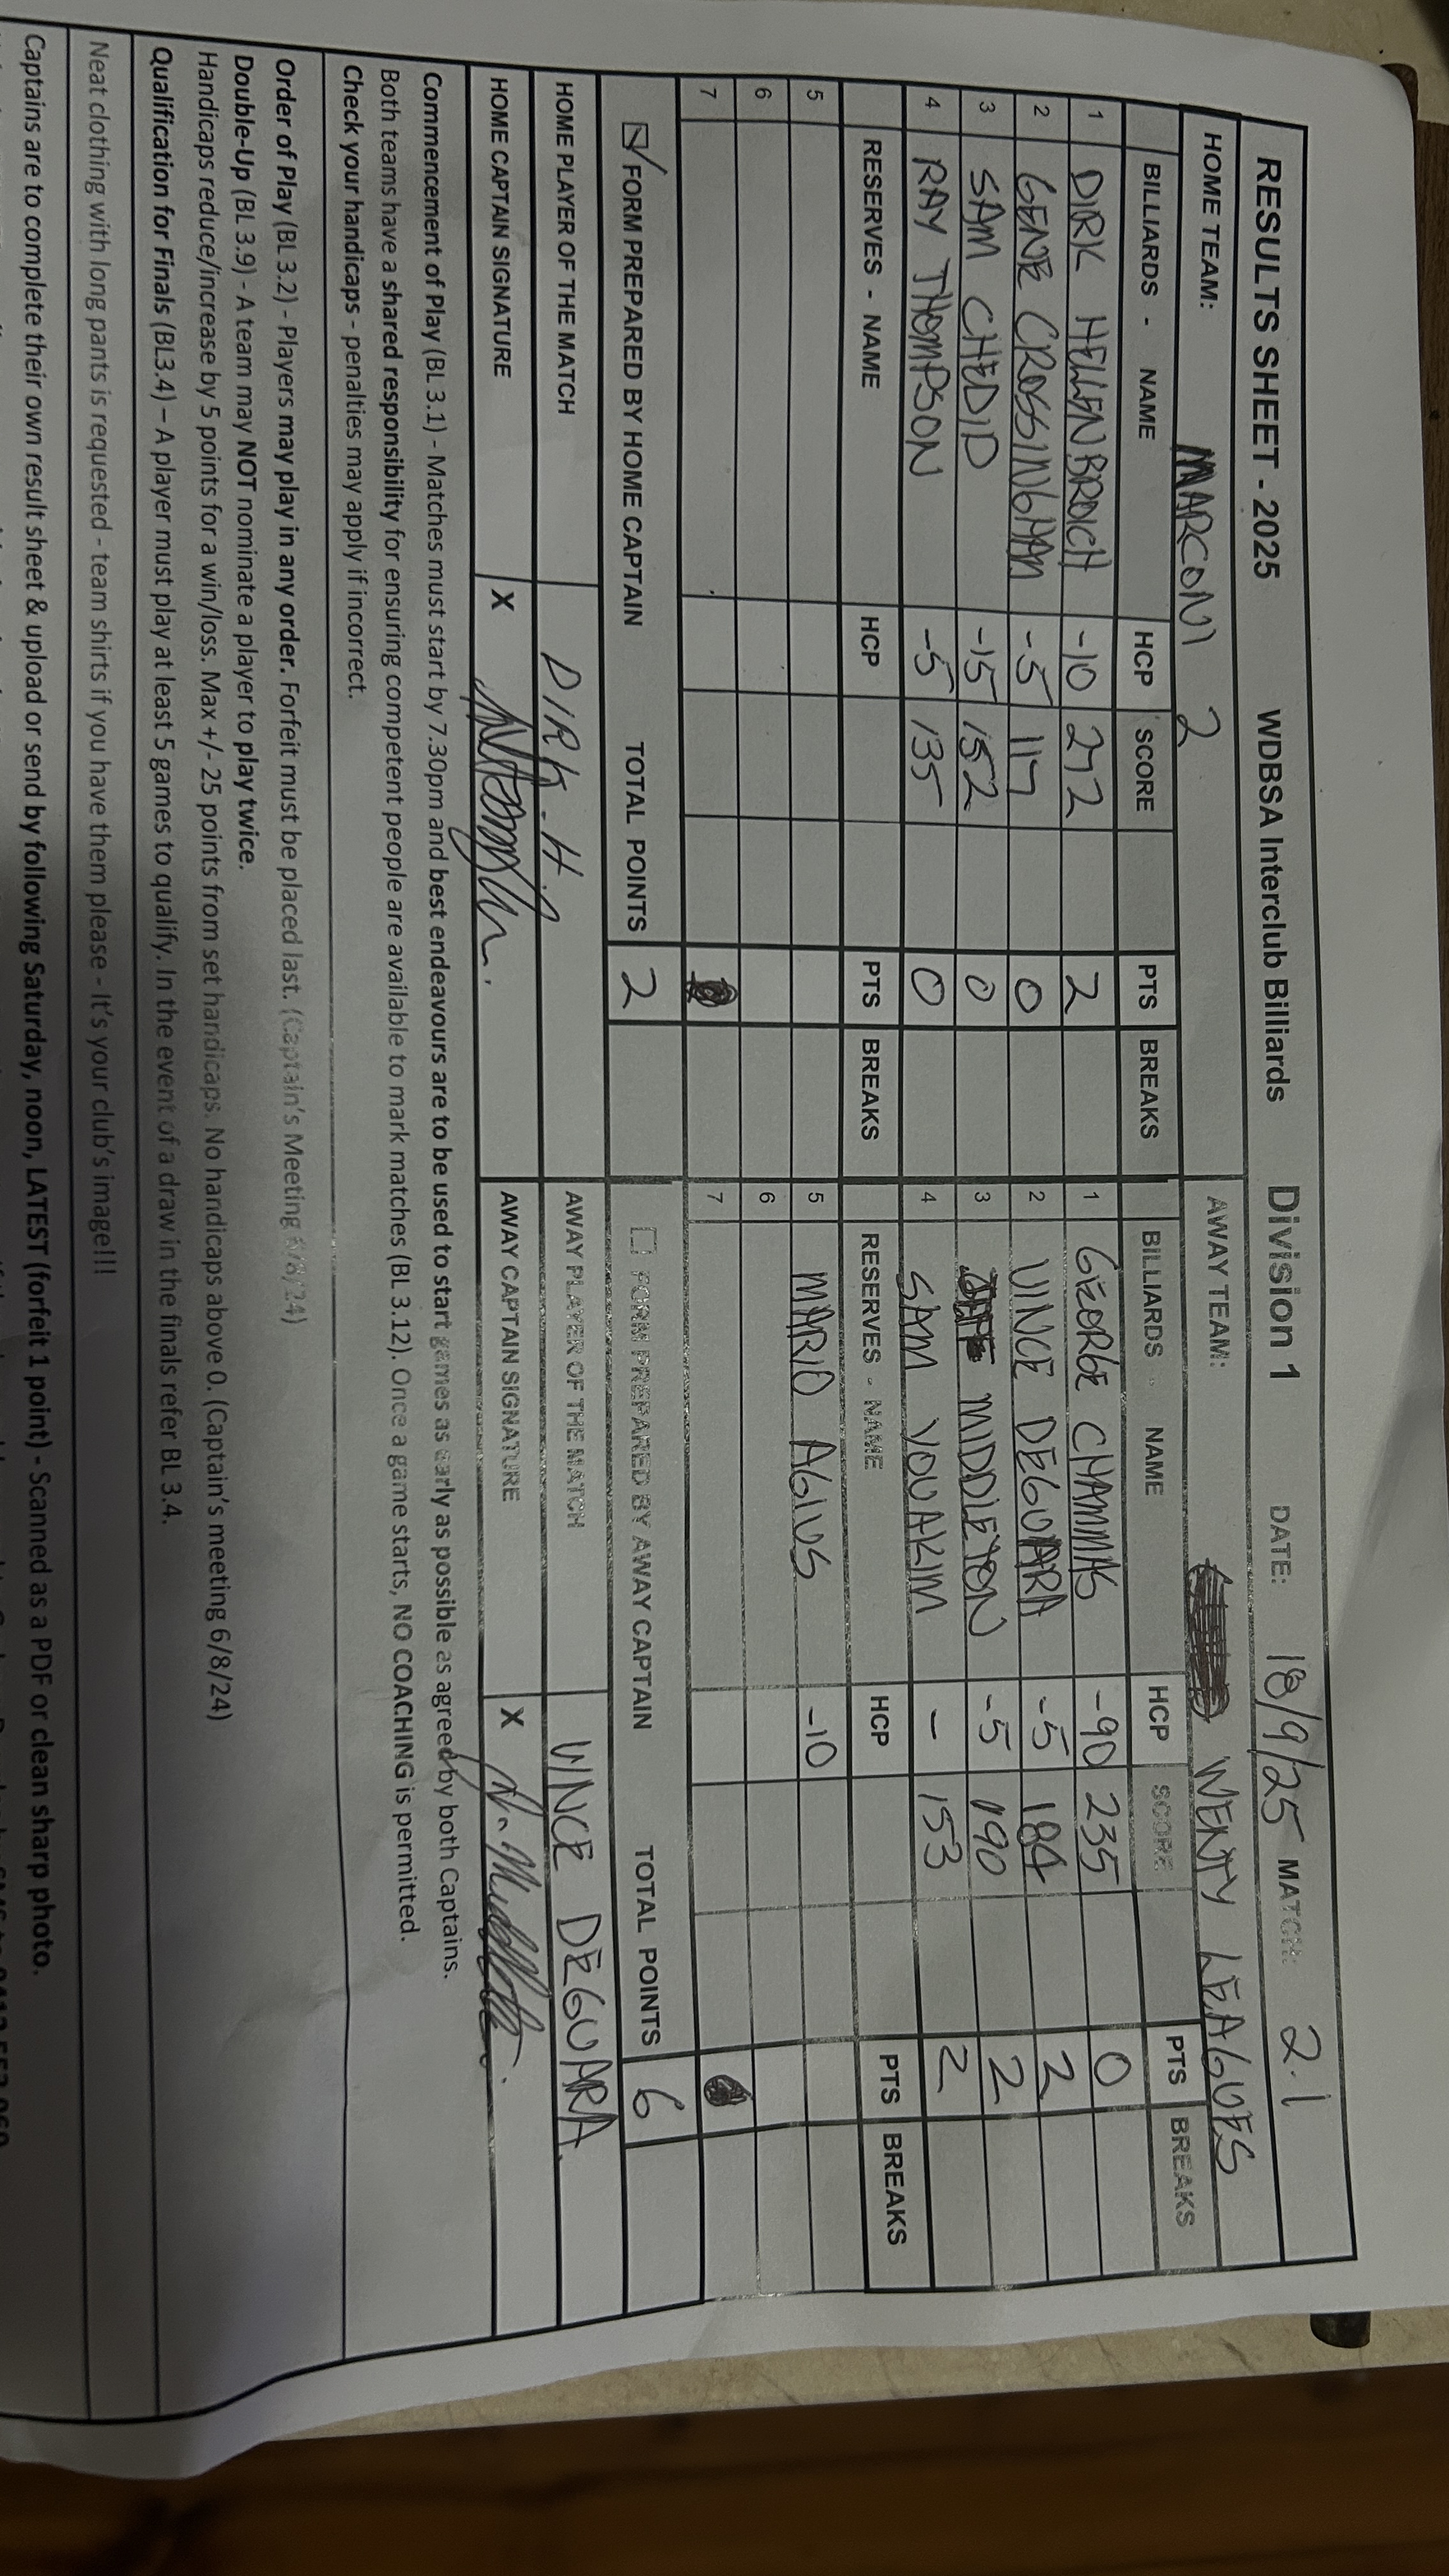 RESULTS SHEET - 2025 WDBSA Interclub Billiards Division 1 DATE: 18/9/25 MATCH: 2.1
HOME TEAM: MARCONI 2 AWAY TEAM: WENTY LEAGUES
BILLIARDS - NAME HCP SCORE PTS BREAKS BILLIARDS - NAME HCP SCORE PTS BREAKS
1 DIRK HELLENBROICH -10 272 2 1 GEORGE CHAMMAS -90 235 0
2 GENE CROSSINGHAM -5 117 0 2 VINCE DEGUARA -5 184 2
3 SAM CHEDID -15 152 0 3 MIDDLETON -5 190 2
4 RAY THOMPSON -5 135 0 4 SAM YOUAKIM - 153 2
RESERVES - NAME HCP PTS BREAKS RESERVES - NAME HCP PTS BREAKS
5 5 MARIO AGIUS -10
6 6
7 7
FORM PREPARED BY HOME CAPTAIN TOTAL POINTS 2 FORM PREPARED BY AWAY CAPTAIN TOTAL POINTS 6
HOME PLAYER OF THE MATCH DIRK-H. AWAY PLAYER OF THE MATCH VINCE DEGUARA.
HOME CAPTAIN SIGNATURE X AWAY CAPTAIN SIGNATURE X
Commencement of Play (BL 3.1) - Matches must start by 7.30pm and best endeavours are to be used to start games as early as possible as agreed by both Captains.
Both teams have a shared responsibility for ensuring competent people are available to mark matches (BL 3.12). Once a game starts, NO COACHING is permitted.
Check your handicaps - penalties may apply if incorrect.
Order of Play (BL 3.2) - Players may play in any order. Forfeit must be placed last. (Captain's Meeting 6/8/24)
Double-Up (BL 3.9) - A team may NOT nominate a player to play twice.
Handicaps reduce/increase by 5 points for a win/loss. Max +/- 25 points from set handicaps. No handicaps above 0. (Captain's meeting 6/8/24)
Qualification for Finals (BL3.4) – A player must play at least 5 games to qualify. In the event of a draw in the finals refer BL 3.4.
Neat clothing with long pants is requested - team shirts if you have them please - It's your club's image!!!
Captains are to complete their own result sheet & upload or send by following Saturday, noon, LATEST (forfeit 1 point) - Scanned as a PDF or clean sharp photo.